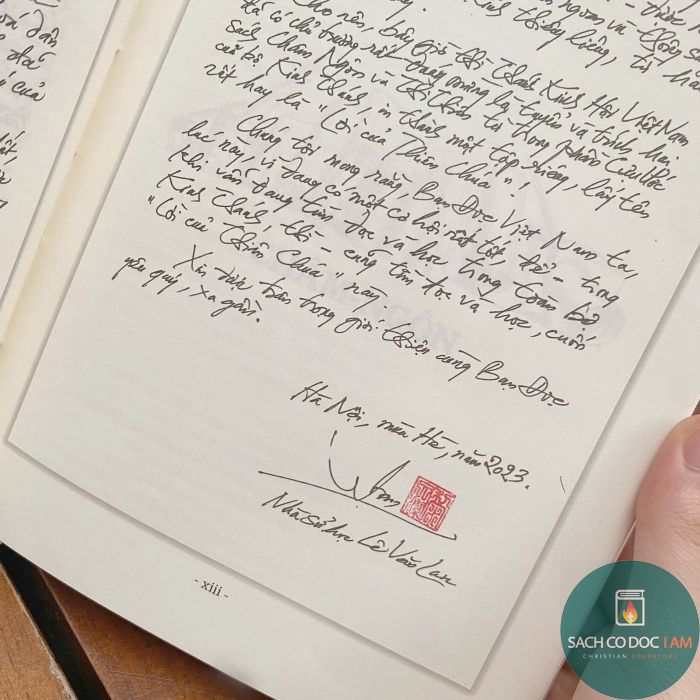 oá dân
đó đá
í của
Cho nên, bây giờ thì Thánh Kinh Hội Việt Nam
đã có chủ trương rất đáng mừng là tuyển và trích hai
sách Châm Ngôn và Thi Thiên từ trong phần Cựu Ước
của bộ Kinh Thánh, in thành một tập riêng, lấy tên
rất hay là "Lời của Thiên Chúa"!
Chúng tôi mong rằng, Bạn Đọc Việt Nam ta,
lúc này, vì đang có một cơ hội rất tốt để - trong
khi vẫn đang tìm đọc và học trong toàn bộ
Kinh Thánh, thì - cùng tìm đọc và học, cuốn
"Lời của Thiên Chúa" này.
Xin được trân trọng giới thiệu cùng Bạn Đọc
yêu quý, xa gần.
Hà Nội, mùa Hè, năm 2023.
Nhà Sử học Lê Văn Lan
- xiii -
SACH CO DOC I AM
CHRISTIAN BOOKSTORE